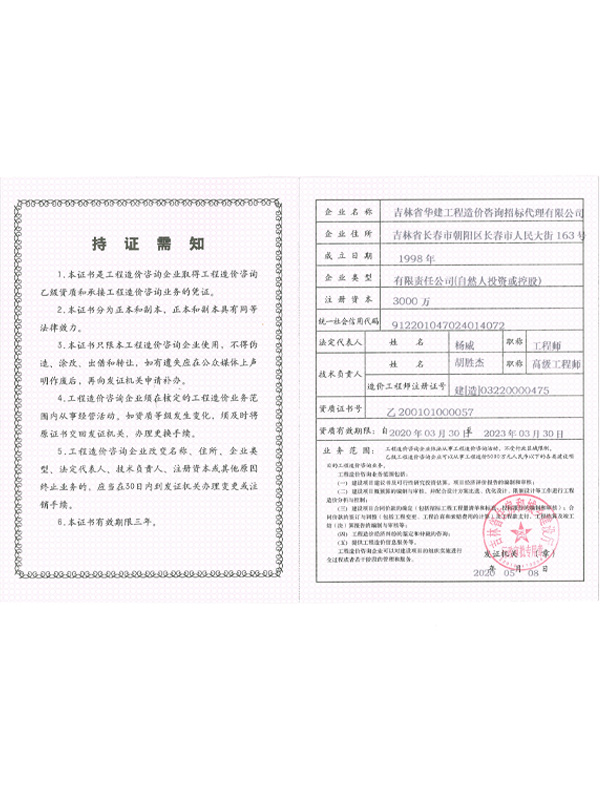 持证需知
1.本证书是工程造价咨询企业取得工程造价咨询
乙级资质和承接工程造价咨询业务的凭证。
2.本证书分为正本和副本，正本和副本具有同等
法律效力。
3.本证书只限本工程造价咨询企业使用，不得伪
造、涂改、出借和转让，如有遗失应在公众媒体上声
明作废后，再向发证机关申请补办。
4.工程造价咨询企业须在核定的工程造价业务范
围内从事经营活动。如资质等级发生变化，须及时将
原证书交回发证机关，办理更换手续。
5.工程造价咨询企业改变名称、住所、企业类
型、法定代表人、技术负责人、注册资本或其他原因
终止业务的，应当在30日内到发证机关办理变更或注
销手续。
6.本证书有效期限三年。
企业名称 吉林省华建工程造价咨询招标代理有限公司
企业住所 吉林省长春市朝阳区长春市人民大街163号
成立日期 1998年
企业类型 有限责任公司(自然人投资或控股)
注册资本 3000万
统一社会信用代码 912201047024014072
法定代表人 姓名 杨威 职称 工程师
技术负责人 姓名 胡胜杰 职称 高级工程师
造价工程师注册证号 建[造]03220000475
资质证书号 乙200101000057
资质有效期限：自2020年03月30日至 2023年03月30日
业务范围：
工程造价咨询企业依法从事工程造价咨询活动，不受行政区域限制。
乙级工程造价咨询企业可以从事工程造价5000万元人民币以下的各类建设项
目的工程造价咨询业务。
工程造价咨询业务范围包括：
(一) 建设项目建议书及可行性研究投资估算、项目经济评价报告的编制和审核；
(二) 建设项目概预算的编制与审核，并配合设计方案比选、优化设计、限额设计等工作进行工程
造价分析与控制；
(Ⅳ) 工程造价经济纠纷的鉴定和仲裁的咨询；
(Ⅴ) 提供工程造价信息服务等。
工程造价咨询企业可以对建设项目的组织实施进行
全过程或者若干阶段的管理和服务。
发证机关 (章)
2020年05月08日